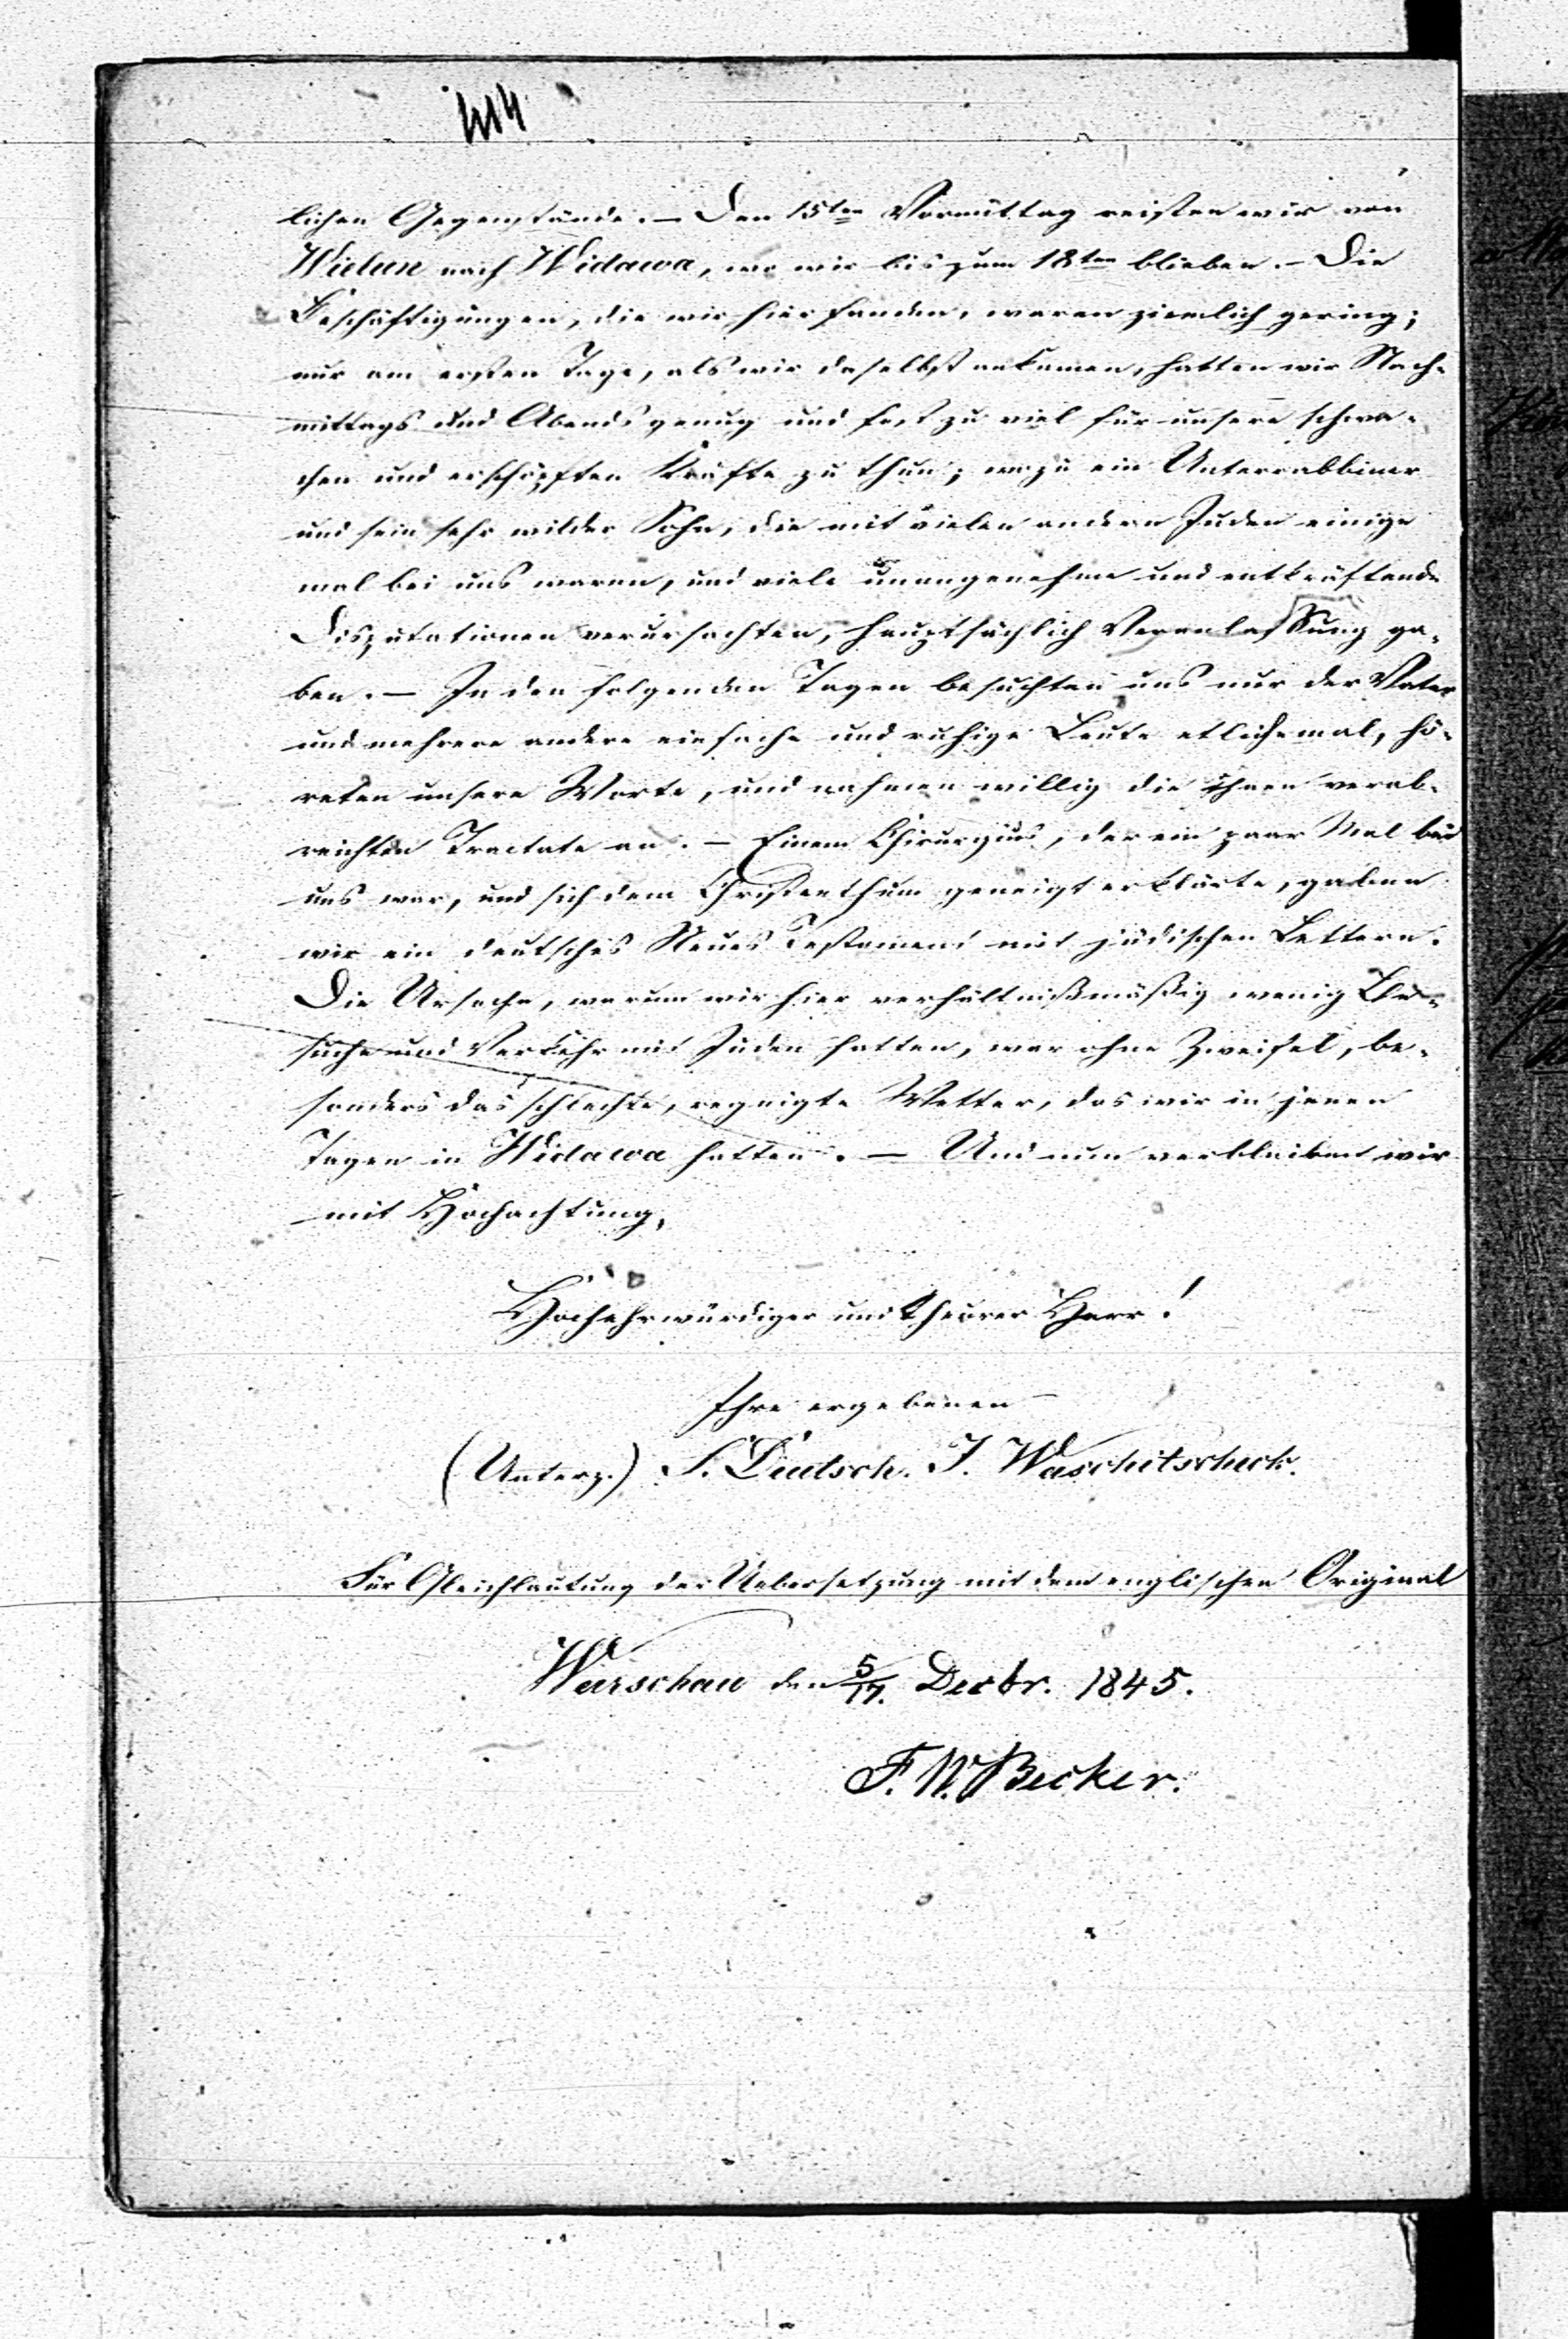 414
lichen Gegenstände. — Den 15ten Vormittag reisten wir von
Wielun nach Widawa, wo wir bis zum 18ten blieben. — Die
Beschäftigungen, die wir hier fanden, waren ziemlich gering;
nur am ersten Tage, als wir daselbst ankamen, hatten wir Nach-
mittags und Abends genug und fast zu viel für unsere schwa-
chen und erschöpften Kräfte zu thun; wozu ein Unterrabbiner
und sein sehr wilder Sohn, die mit vielen andern Juden einige
mal bei uns waren, und viele unangenehme und entkräftende
Disputationen verursachten, hauptsächlich Veranlassung ga-
ben. — In den folgenden Tagen besuchten uns nur der Vater
und mehrere andere einfache und ruhige Leute etlichemal, hö-
reten unsere Worte, und nahmen willig die ihnen verab-
reichten Tractate an. — Einem Chirurgus, der ein paar Mal bei
uns war, und sich dem Christenthum geneigt erklärte, gaben
wir ein deutsches Neues Testament mit jüdischen Lettern.
Die Ursache, warum wir hier verhältnißmäßig wenig Be-
suche und Verkehr mit Juden hatten, war ohne Zweifel, be-
sonders das schlechte, regnigte Wetter, das wir in jenen
Tagen in Widawa hatten. — Und nun verbleiben wir
mit Hochachtung,
Hochehrwürdiger und theurer Herr!
Ihre ergebenen
(Unterz.) S. Deutsch. J. Waschitscheck.
Für Gleichlautung der Uebersetzung mit dem englischen Original
Warschau den 5/17. Decbr. 1845.
F. W. Becker.